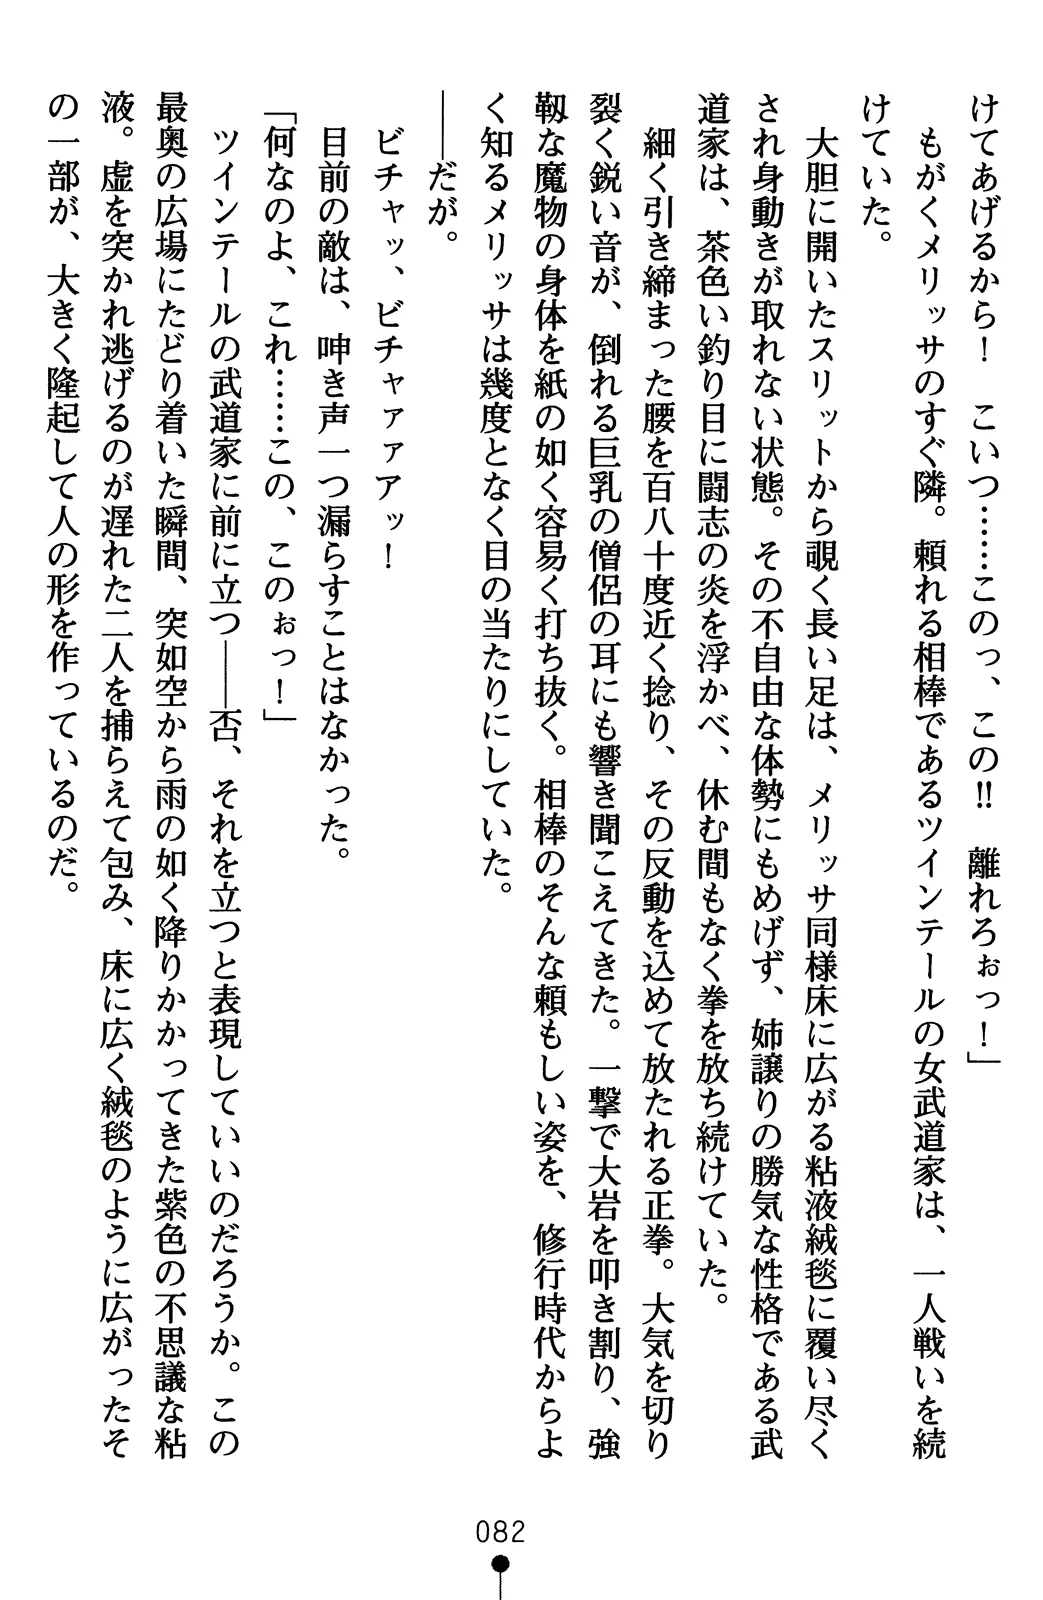 けてあげるから！　こいつ……このっ、この!!　離れろぉっ！」
　もがくメリッサのすぐ隣。頼れる相棒であるツインテールの女武道家は、一人戦いを続
けていた。
　大胆に開いたスリットから覗く長い足は、メリッサ同様床に広がる粘液絨毯に覆い尽く
され身動きが取れない状態。その不自由な体勢にもめげず、姉譲りの勝気な性格である武
道家は、茶色い釣り目に闘志の炎を浮かべ、休む間もなく拳を放ち続けていた。
　細く引き締まった腰を百八十度近く捻り、その反動を込めて放たれる正拳。大気を切り
裂く鋭い音が、倒れる巨乳の僧侶の耳にも響き聞こえてきた。一撃で大岩を叩き割り、強
靱な魔物の身体を紙の如く容易く打ち抜く。相棒のそんな頼もしい姿を、修行時代からよ
く知るメリッサは幾度となく目の当たりにしていた。
――だが。
　ビチャッ、ビチャァァアッ！
　目前の敵は、呻き声一つ漏らすことはなかった。
「何なのよ、これ……この、このぉっ！」
　ツインテールの武道家に前に立つ――否、それを立つと表現していいのだろうか。この
最奥の広場にたどり着いた瞬間、突如空から雨の如く降りかかってきた紫色の不思議な粘
液。虚を突かれ逃げるのが遅れた二人を捕らえて包み、床に広く絨毯のように広がったそ
の一部が、大きく隆起して人の形を作っているのだ。
082